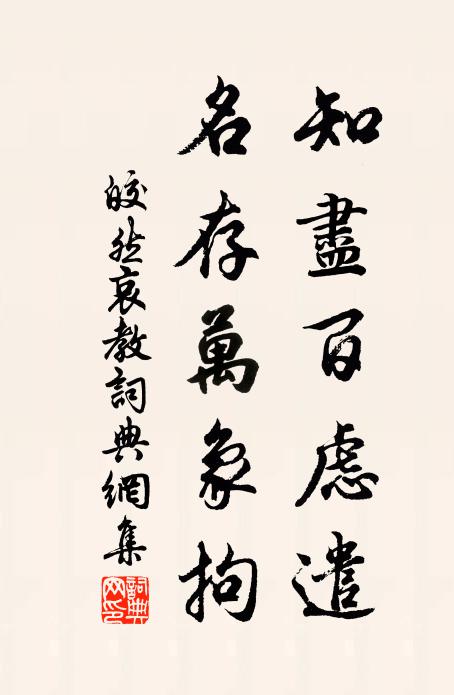 知盡百慮遣
名存萬象拘
皎然哀教詞典網集
詞典網印